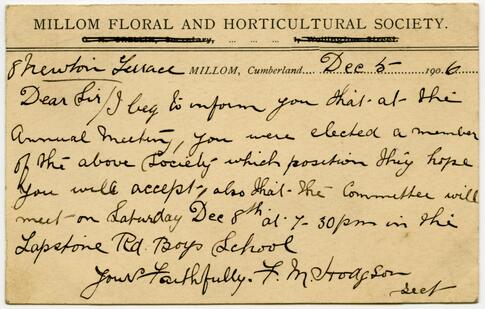 MILLOM FLORAL AND HORTICULTURAL SOCIETY.
Secretary, ... ... Wellington Street.
8 Newton Terrace MILLOM, Cumberland Dec 5 1906
Dear Sir/ I beg to inform you that at the
Annual Meeting, you were elected a member
of the above Society which position they hope
you will accept, also that the Committee will
meet on Saturday Dec 8th at 7-30pm in the
Lapstone Rd. Boys School
Yours Faithfully. F. M. Hodgson
Sect